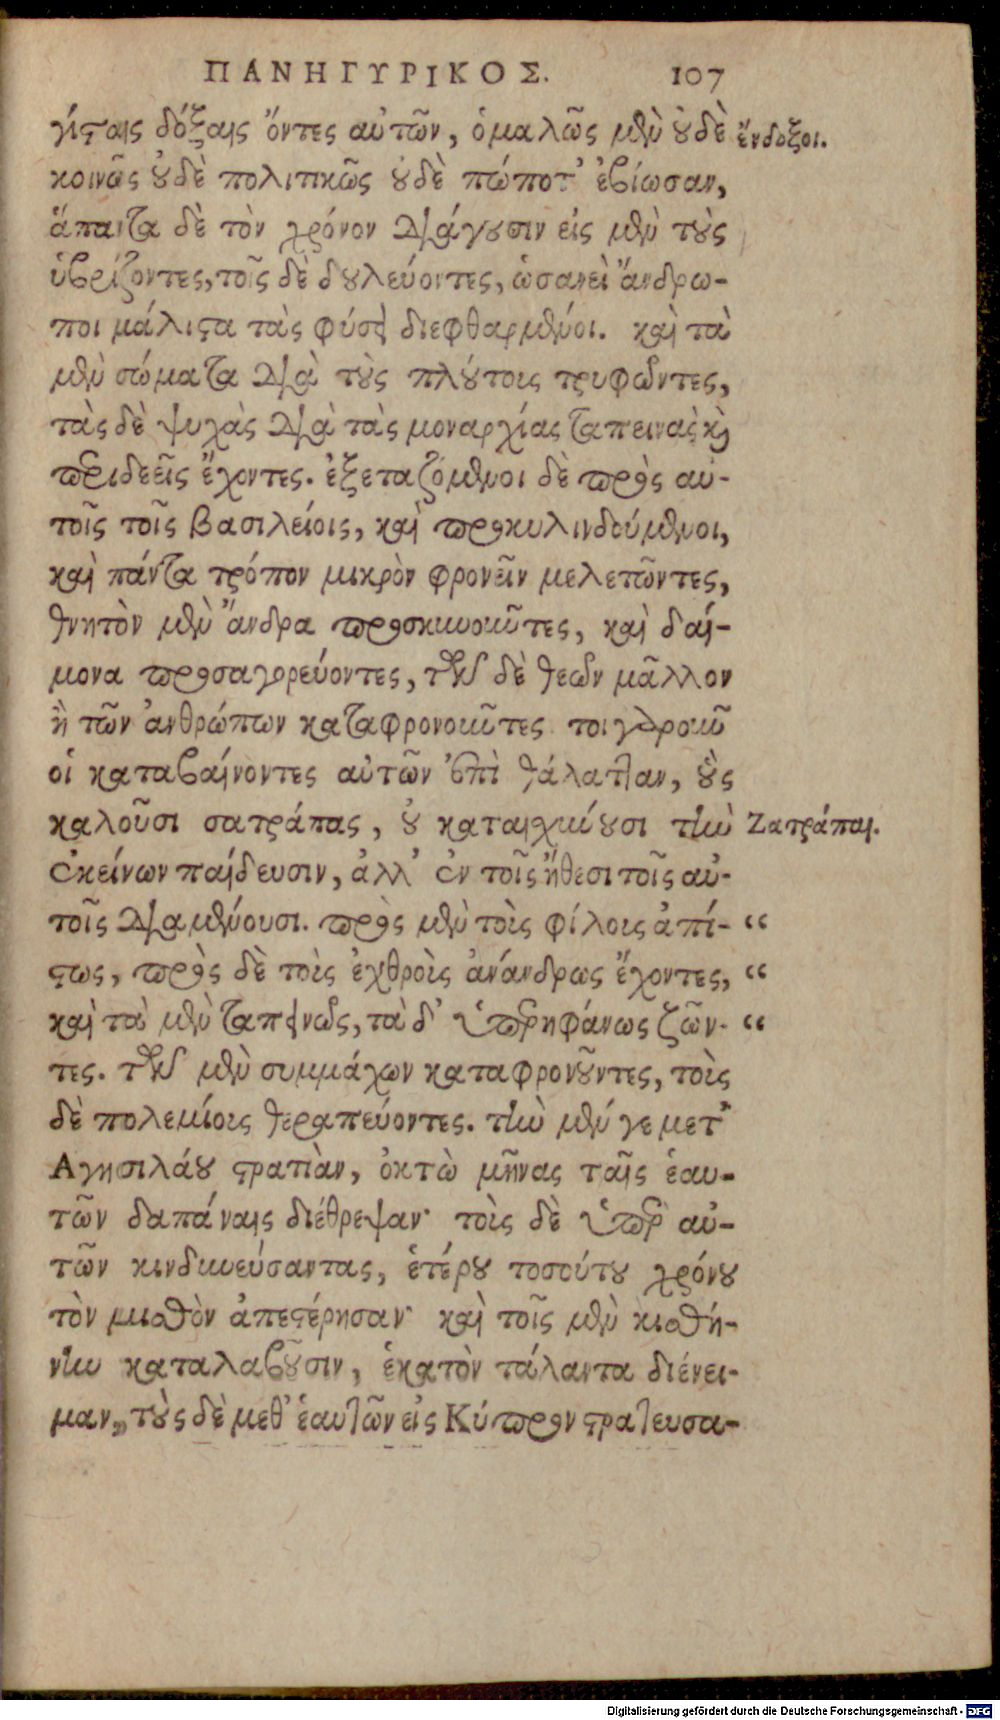 ΠΑΝΗΓΥΡΙΚΟΣ. 107
γίσταις δόξαις ὄντες αὐτῶν, ὁμαλῶς μὲν οὐδὲ ἔνδοξοι.
κοινῶς οὐδὲ πολιτικῶς οὐδὲ πώποτ' ἐβίωσαν,
ἅπαντα δὲ τὸν χρόνον διάγουσιν εἰς μὲν τοὺς
ὑβρίζοντες, τοῖς δὲ δουλεύοντες, ὡσανεὶ ἄνθρω-
ποι μάλιστα τὰς φύσεις διεφθαρμένοι. καὶ τὰ
μὲν σώματα διὰ τοὺς πλούτοις τρυφῶντες,
τὰς δὲ ψυχὰς διὰ τὰς μοναρχίας ταπεινὰς καὶ
περιδεεῖς ἔχοντες. ἐξεταζόμενοι δὲ πρὸς αὐ-
τοῖς τοῖς βασιλείοις, καὶ προκυλινδούμενοι,
καὶ πάντα τρόπον μικρὸν φρονεῖν μελετῶντες,
θνητὸν μὲν ἄνδρα προσκυνοῦντες, καὶ δαί-
μονα προσαγορεύοντες, τῶν δὲ θεῶν μᾶλλον
ἢ τῶν ἀνθρώπων καταφρονοῦντες τοιγαροῦν
οἱ καταβαίνοντες αὐτῶν ἐπὶ θάλατταν, οὓς
καλοῦσι σατράπας, οὐ καταισχύνουσι τὴν Ζατράπαι.
ἐκείνων παίδευσιν, ἀλλ' ἐν τοῖς ἤθεσι τοῖς αὐ-
τοῖς διαμένουσι. πρὸς μὲν τοὶς φίλοις ἀπί- “
στως, πρὸς δὲ τοὶς ἐχθροὶς ἀνάνδρως ἔχοντες, “
καὶ τὰ μὲν ταπεινῶς, τὰ δ' ὑπερηφάνως ζῶν- “
τες. τῶν μὲν συμμάχων καταφρονοῦντες, τοὶς
δὲ πολεμίοις θεραπεύοντες. τὴν μέν γε μετ'
Αγησιλάου στρατιὰν, ὀκτὼ μῆνας ταῖς ἑαυ-
τῶν δαπάναις διέθρεψαν· τοὶς δὲ ὑπὲρ αὐ-
τῶν κινδυνεύσαντας, ἑτέρου τοσούτου χρόνου
τὸν μισθὸν ἀπεστέρησαν· καὶ τοῖς μὲν κισθή-
νην καταλαβοῦσιν, ἑκατὸν τάλαντα διένει-
μαν, τοὺς δὲ μεθ' ἑαυτῶν εἰς Κύπρον στρατευσα-
Digitalisierung gefördert durch die Deutsche Forschungsgemeinschaft - DFG